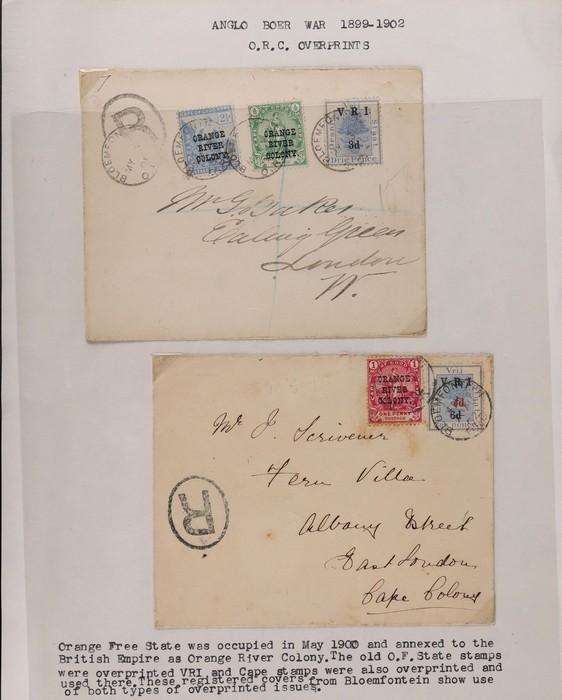 ANGLO BOER WAR 1899-1902
O.R.C. OVERPRINTS
R
BLOEMFONTEIN
MY
ORANGE
RIVER
COLONY.
ORANGE
RIVER
COLONY.
V R I
3d
Drie Pence
Mr G. Baker
Ealing Green
London
W.
1 1
ORANGE
RIVER
COLONY.
ONE PENNY
Vrij
V R I
6d
BLOEMFONTEIN
Mr J. Scrivener
Fern Villa
Albany Street
East London
Cape Colony
R
Orange Free State was occupied in May 1900 and annexed to the
British Empire as Orange River Colony.The old O.F.State stamps
were overprinted VRI and Cape stamps were also overprinted and
used there.These registered covers from Bloemfontein show use
of both types of overprinted issues.